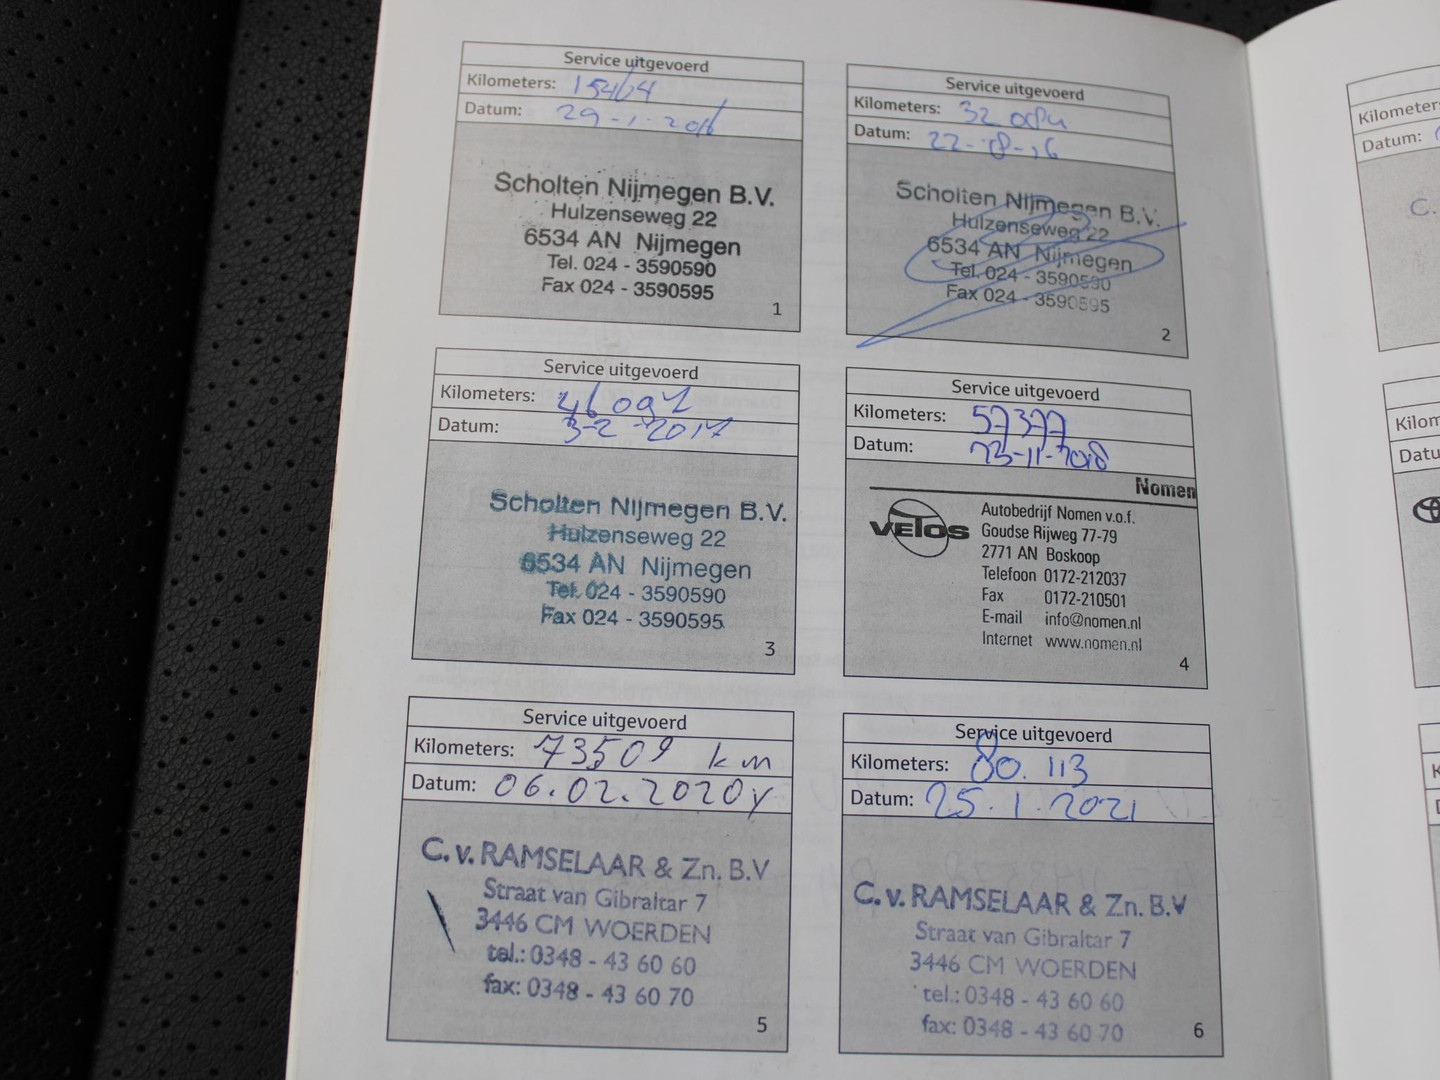 Service uitgevoerd
Kilometers: 15464
Datum: 29-1-2016
Scholten Nijmegen B.V.
Hulzenseweg 22
6534 AN Nijmegen
Tel. 024 - 3590590
Fax 024 - 3590595
1
Service uitgevoerd
Kilometers: 32
Datum: 22-8-16
Scholten Nijmegen B.V.
Hulzenseweg 22
6534 AN Nijmegen
Tel. 024 - 3590590
Fax 024 - 3590595
2
Service uitgevoerd
Kilometers: 46091
Datum: 3-2-2017
Scholten Nijmegen B.V.
Hulzenseweg 22
6534 AN Nijmegen
Tel. 024 - 3590590
Fax 024 - 3590595
3
Service uitgevoerd
Kilometers: 57377
Datum: 23-11-2018
Nomen
VELOS
Autobedrijf Nomen v.o.f.
Goudse Rijweg 77-79
2771 AN Boskoop
Telefoon 0172-212037
Fax 0172-210501
E-mail info@nomen.nl
Internet www.nomen.nl
4
Service uitgevoerd
Kilometers: 73509 km
Datum: 06.02.2020
C. v. RAMSELAAR & Zn. B.V
Straat van Gibraltar 7
3446 CM WOERDEN
tel.: 0348 - 43 60 60
fax: 0348 - 43 60 70
5
Service uitgevoerd
Kilometers: 80.113
Datum: 25.1.2021
C. v. RAMSELAAR & Zn. B.V
Straat van Gibraltar 7
3446 CM WOERDEN
tel.: 0348 - 43 60 60
fax: 0348 - 43 60 70
6
Kilometer
Datum:
C.
Kilom
Datu
K
D